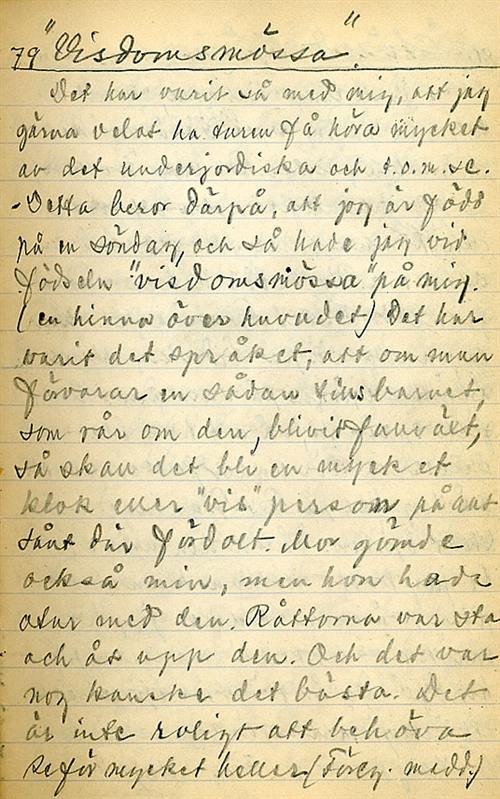 79 "Visdomsmössa".
Det har varit så med mig, att jag
gärna velat ha turen få höra mycket
av det underjordiska och t.o.m. se.
-Detta beror därpå, att jag är född
på en söndag, och så hade jag vid
födseln "visdomsmössa" på mig.
(en hinna över huvudet) Det har
varit det språket, att om man
förvarar en sådan tills barnet,
som rår om den, blivit fullvält,
så skall det bli en mycket
klok eller "vis" person på allt
sånt där fördolt. Mor gömde
också min, men hon hade
otur med den. Råttorna var sta
och åt upp den. Och det var
nog kanske det bästa. Det
är inte roligt att behöva
se för mycket heller (Föreg. medd.)